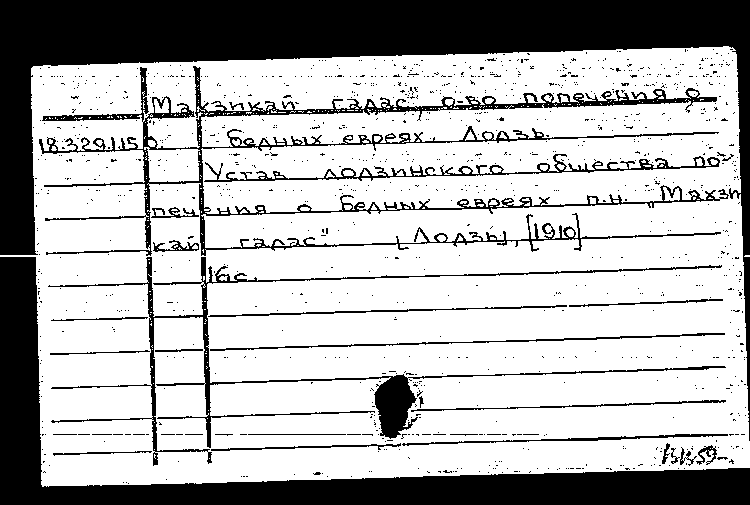 "Махзикай гадас", о-во попечения о
18.329.1.15б. бедных евреях. Лодзь.
Устав лодзинского общества по-
печения о бедных евреях п.н. "Махзи
кай гадас". [Лодзь], [1910]
16с.